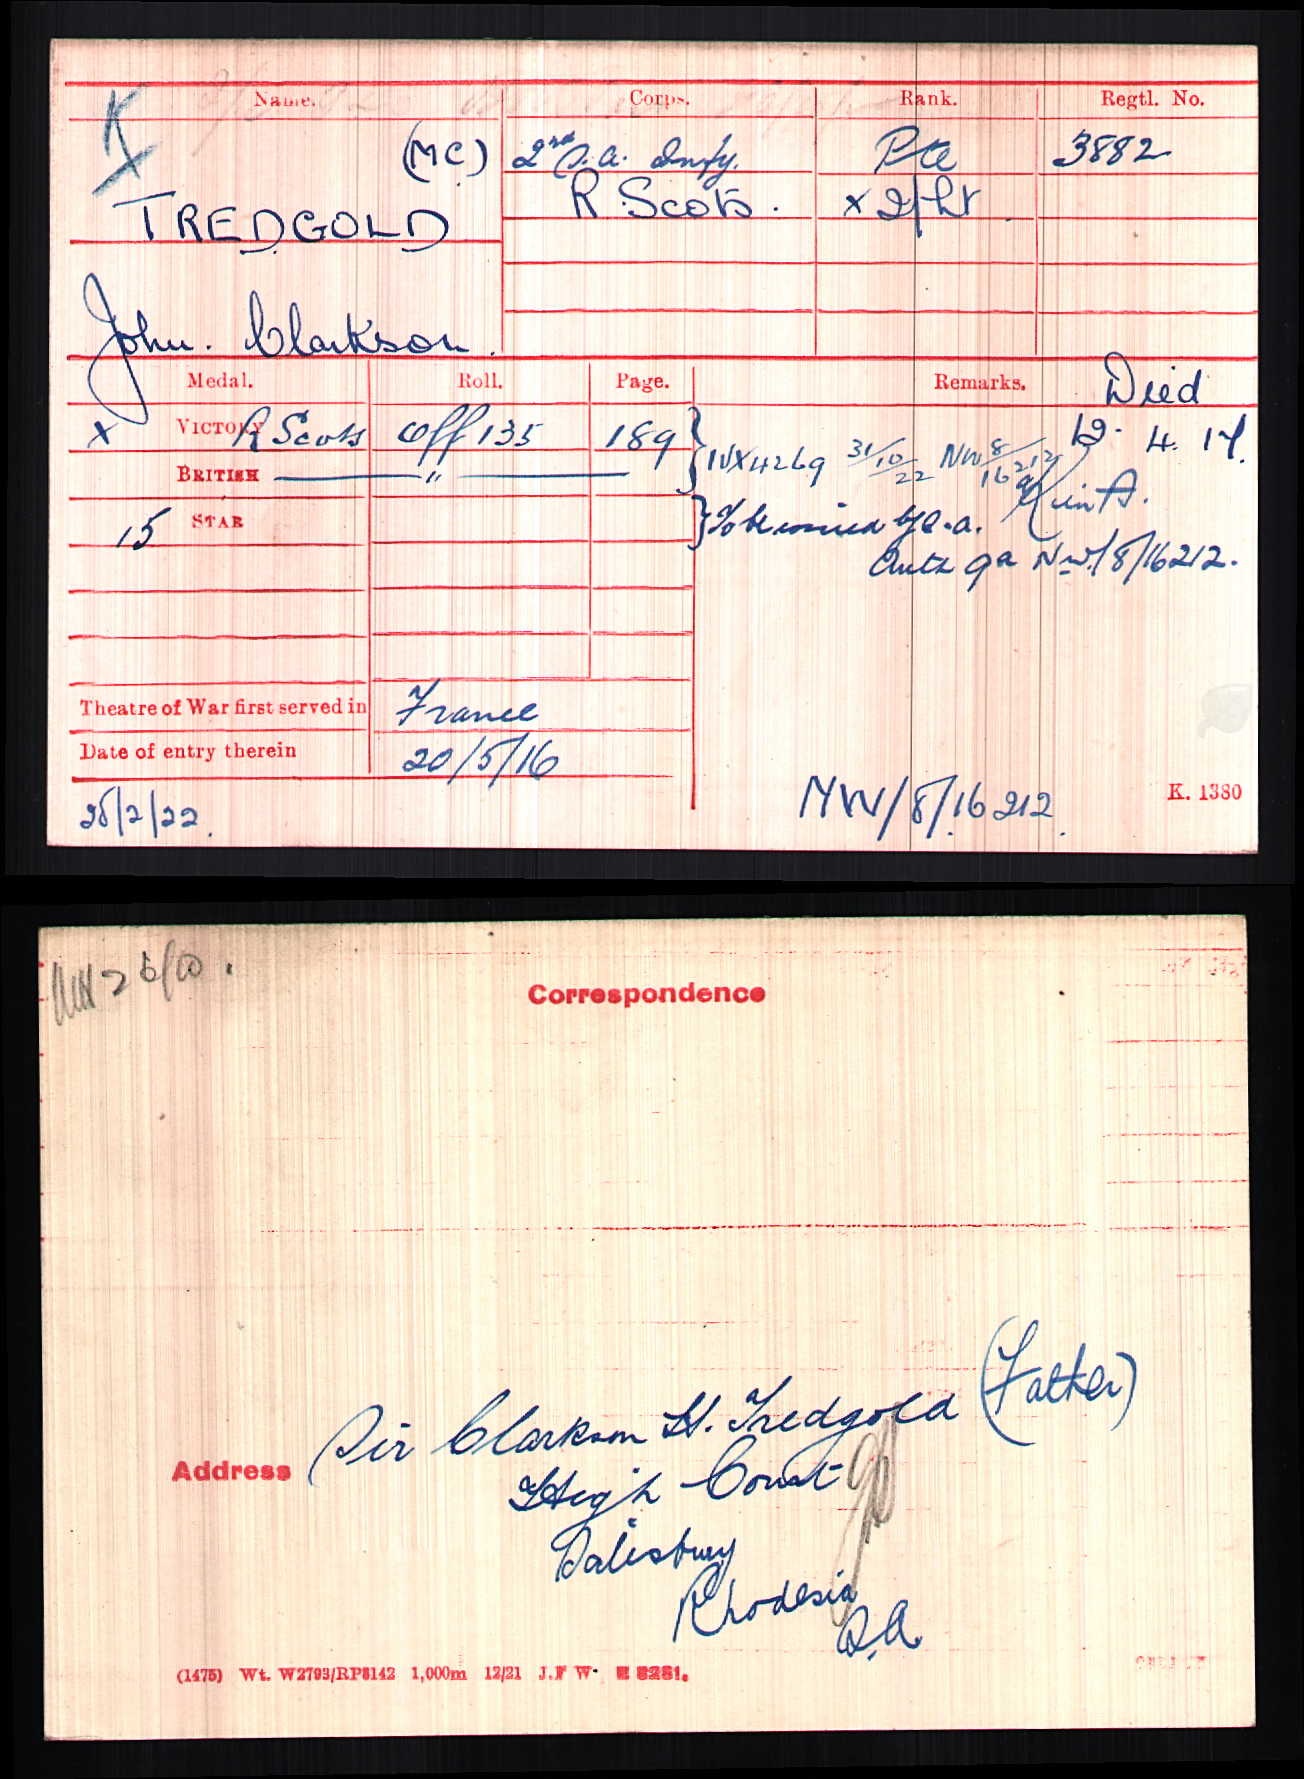 Name. Corps. Rank. Regtl. No.
(MC) 2nd S.A. Infy. Pte 3882
TREDGOLD R Scots. x 2/Lt
John. Clarkson.
Medal. Roll. Page. Remarks. Died
x VICTORY R Scots Off 135 189 } IVX4269 31/10/22 NW 8/16212 12. 4. 17.
BRITISH " K in A.
15 STAR } To be issued by S.A.
Auth 9a NW/8/16212.
Theatre of War first served in France
Date of entry therein 20/5/16
25/2/22. NW/8/16212. K. 1380
Correspondence
Address Sir Clarkson H. Tredgold (Father)
High Court
Salisbury
Rhodesia
S.A.
(1475) Wt. W2793/RP8142 1,000m 12/21 J.F W. E 8281.